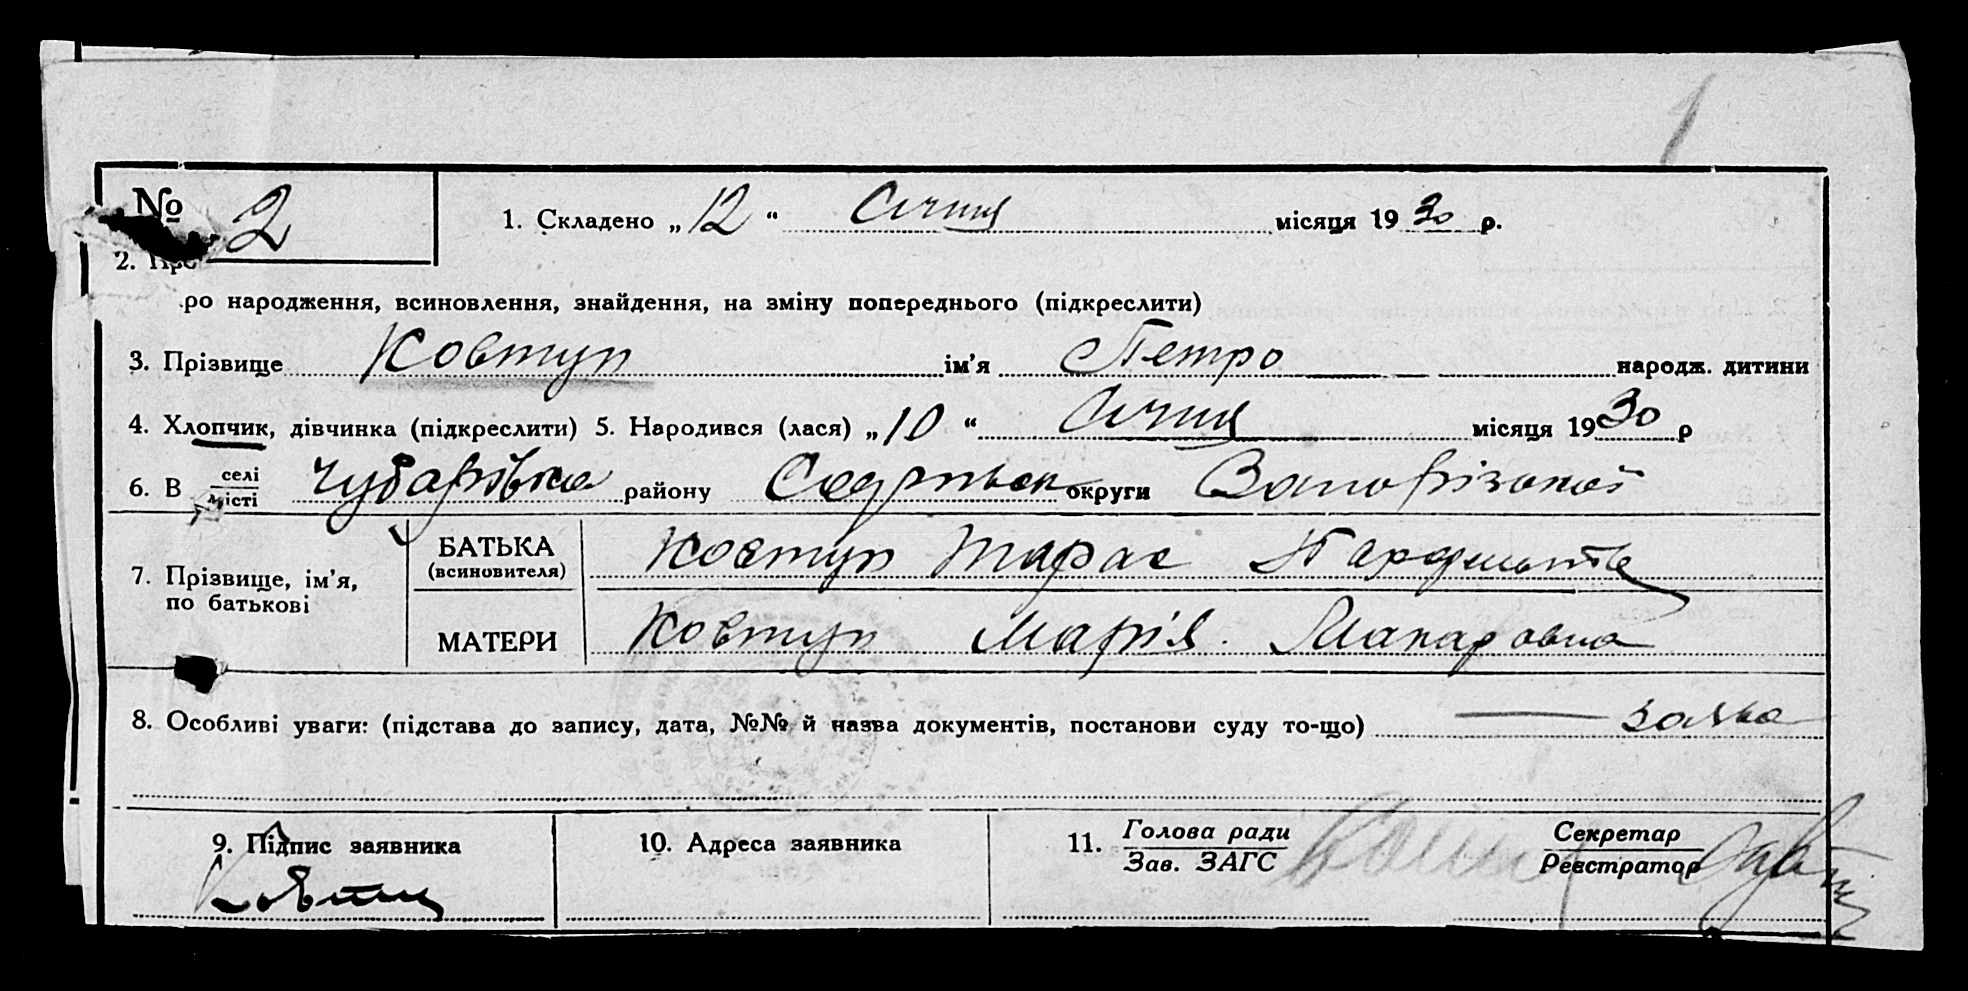 1
№ 2
1. Складено „ 12 “ Січня місяця 19 30 р.
2. Про
ро народження, всиновлення, знайдення, на зміну попереднього (підкреслити)
3. Прізвище Ковтун ім’я Петро народж. дитини
4. Хлопчик, дівчинка (підкреслити) 5. Народився (лася) „ 10 “ Січня місяця 19 30 р
6. В селі місті Чубарівка району округи Запорізької
7. Прізвище, ім’я, по батькові
БАТЬКА (всиновителя) Ковтун Тарас
МАТЕРИ Ковтун Марія Макаровна
8. Особливі уваги: (підстава до запису, дата, №№ й назва документів, постанови суду то-що) — заява
9. Підпис заявника
10. Адреса заявника
11. Голова ради Зав. ЗАГС
Секретар Реєстратор